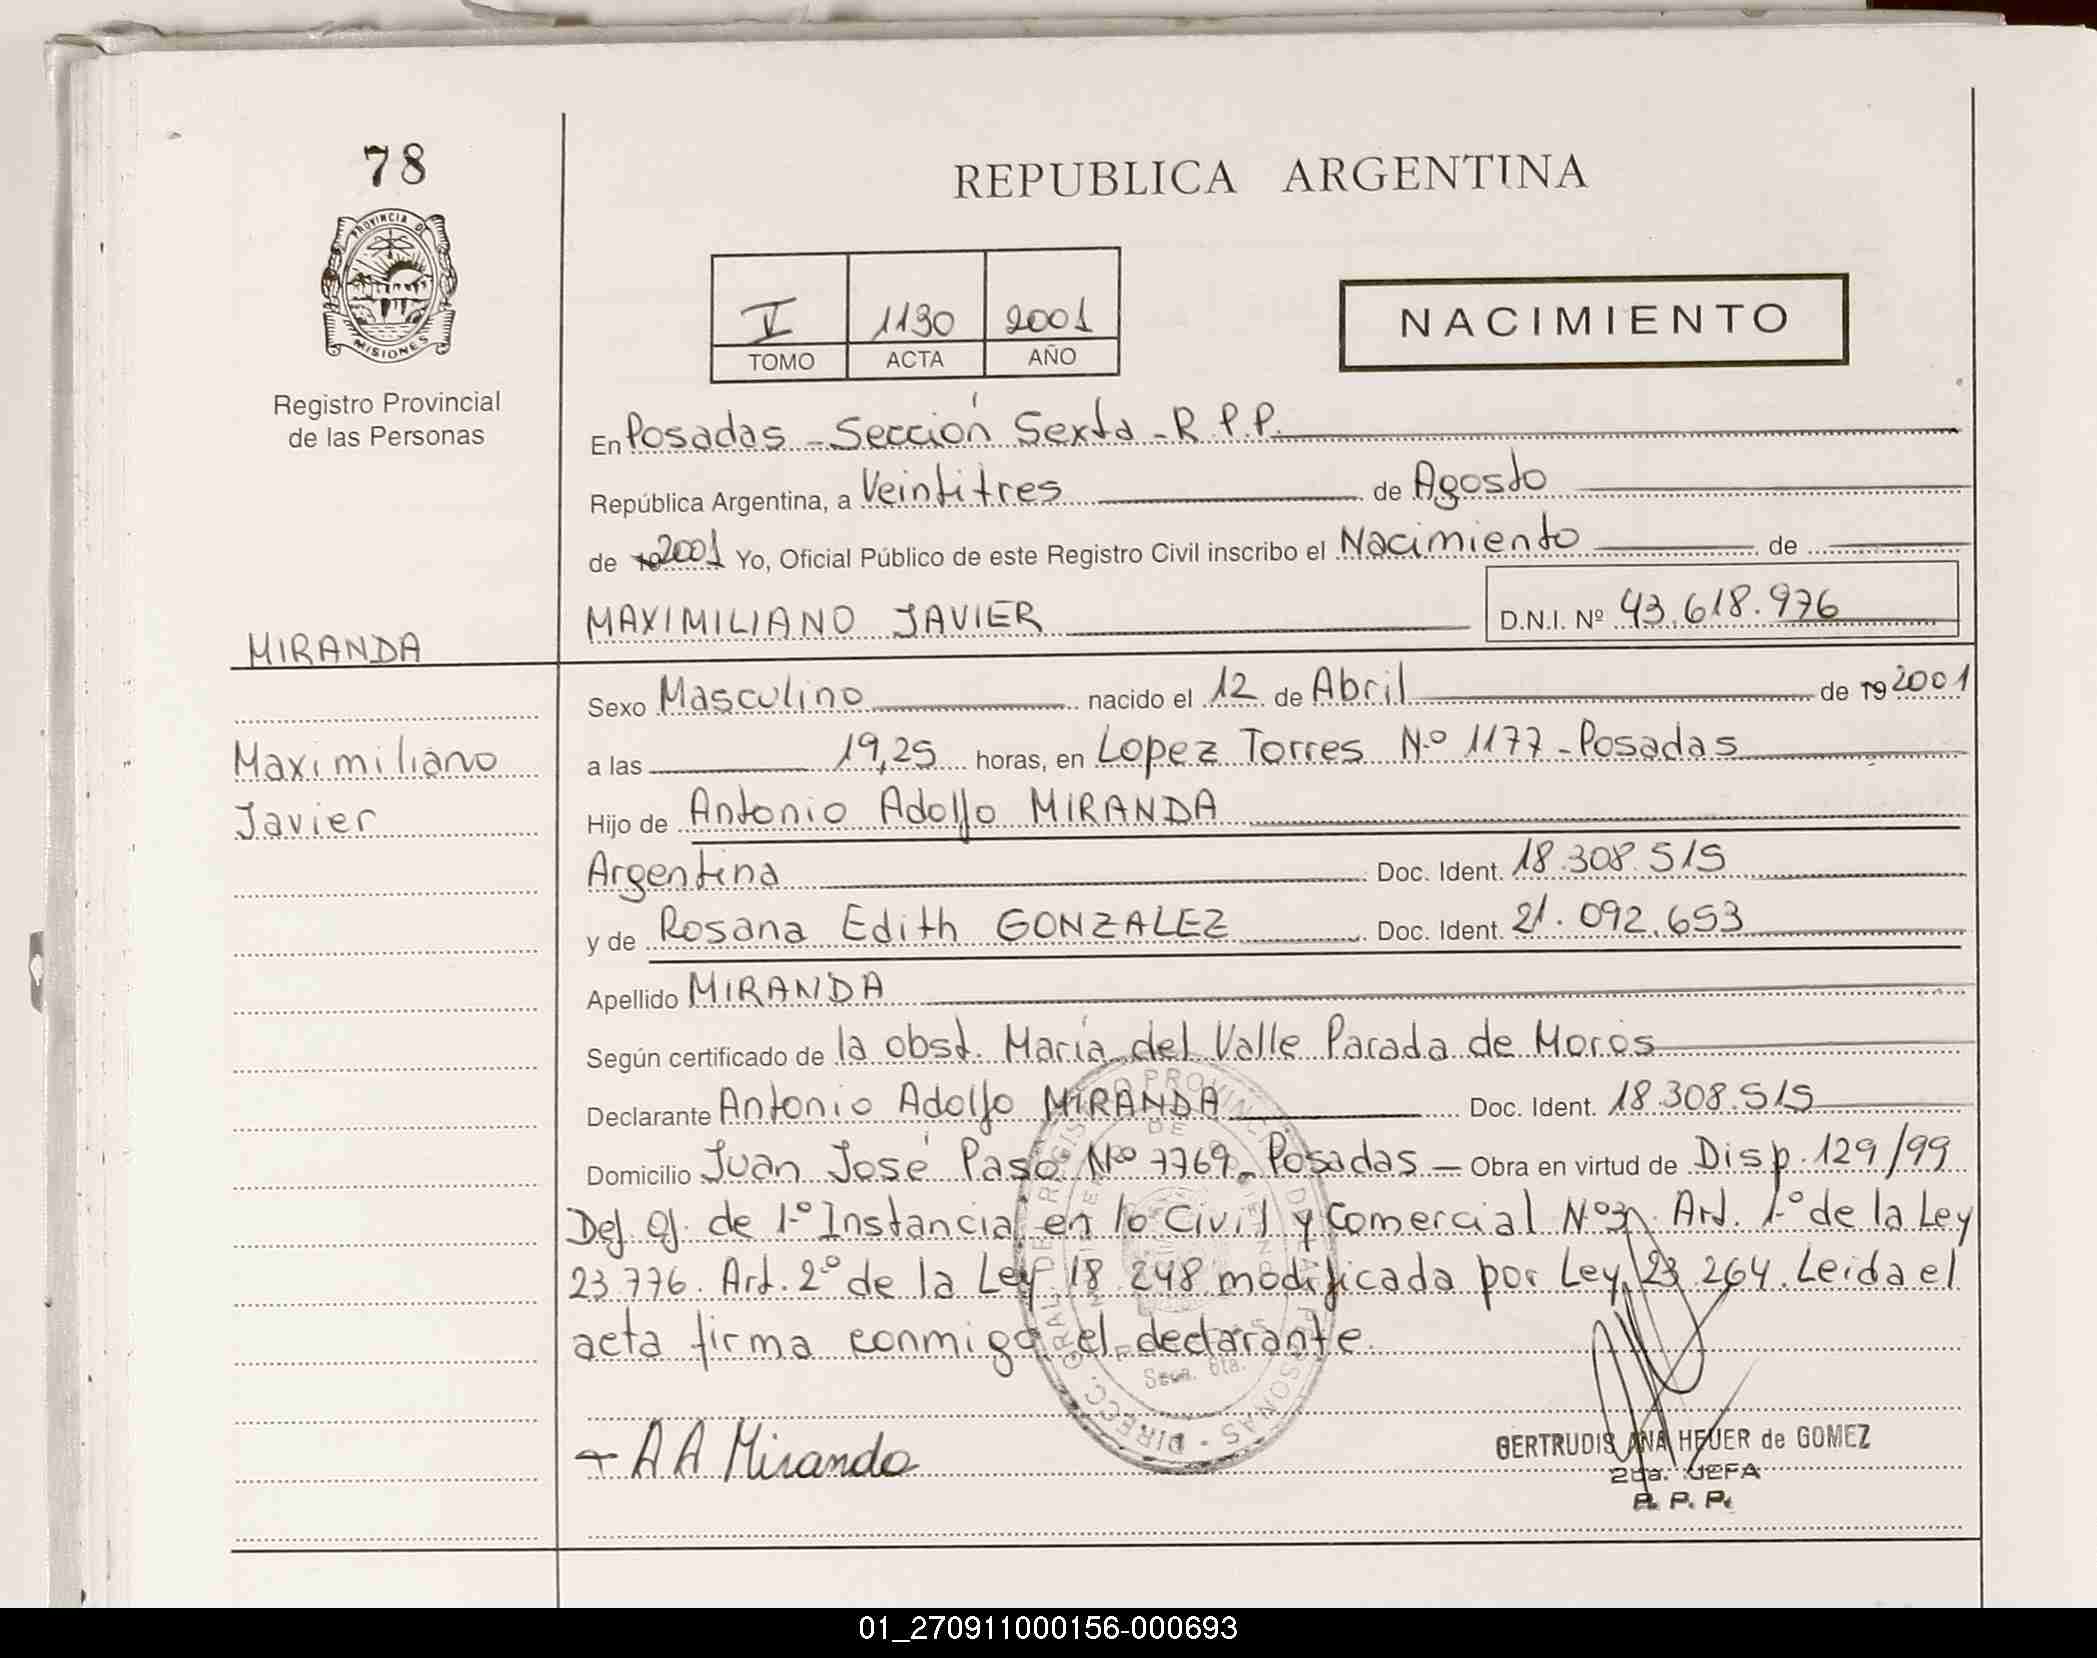 78
REPUBLICA ARGENTINA
PROVINCIA DE
MISIONES
Registro Provincial
de las Personas
V 1130 2001
TOMO ACTA AÑO
NACIMIENTO
En Posadas - Sección Sexta - R.P.P.
República Argentina, a Veintitres de Agosto
de 19 2001 Yo, Oficial Público de este Registro Civil inscribo el Nacimiento de
MAXIMILIANO JAVIER D.N.I. Nº 43.618.976
MIRANDA
Sexo Masculino nacido el 12 de Abril de 19 2001
Maximiliano
a las 19,25 horas, en Lopez Torres N.º 1177 - Posadas
Javier
Hijo de Antonio Adolfo MIRANDA
Argentina Doc. Ident. 18.308.515
y de Rosana Edith GONZALEZ Doc. Ident. 21.092.653
Apellido MIRANDA
Según certificado de la obst. María del Valle Parada de Moros
Declarante Antonio Adolfo MIRANDA Doc. Ident. 18.308.515
Domicilio Juan José Paso Nº 7769 - Posadas - Obra en virtud de Disp. 129/99
Def. Of. de 1.º Instancia en lo Civil y Comercial Nº 3. Art. 1.º de la Ley
23.776. Art. 2º de la Ley 18.248 modificada por Ley 23.264. Leida el
acta firma conmigo el declarante.
DIRECC. GRAL. DEL REGISTRO PROVINCIAL DE LAS PERSONAS
Secc. 6ta.
A A Miranda
GERTRUDIS ANA HEUER de GOMEZ
2da. JEFA
R. P. P.
01_270911000156-000693